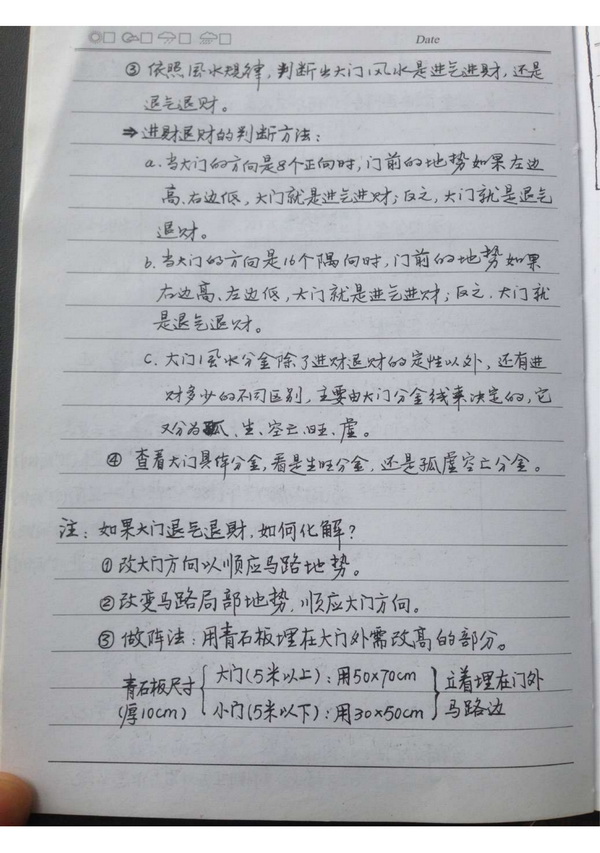 Date
③ 依照风水规律，判断出大门风水是进气进财，还是
退气退财。
⇒ 进财退财的判断方法：
a. 当大门的方向是8个正向时，门前的地势如果左边
高、右边低，大门就是进气进财；反之，大门就是退气
退财。
b. 当大门的方向是16个隅向时，门前的地势如果
右边高、左边低，大门就是进气进财；反之，大门就
是退气退财。
C. 大门风水分金除了进财退财的定性以外，还有进
财多少的不同区别，主要由大门分金线来决定的，它
又分为孤、生、空亡、旺、虚。
④ 查看大门具体分金，看是生旺分金，还是孤虚空亡分金。
注：如果大门退气退财，如何化解？
①改大门方向以顺应马路地势。
②改变马路局部地势，顺应大门方向。
③做阵法：用青石板埋在大门外需改高的部分。
青石板尺寸 大门(5米以上)：用50×70cm 立着埋在门外
(厚10cm) 小门(5米以下)：用30×50cm 马路边